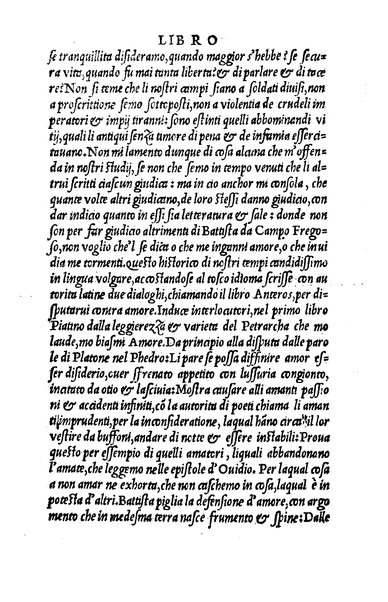 LIBRO
se tranquillita disideramo, quando maggior s'hebbe? se secu
ra vita, quando fu mai tanta liberta? & di parlare & di tace
re? Non si teme che li nostri campi siano a soldati divisi, non
a proscrittione semo sottoposti, non a violentia de crudeli im
peratori & impij tiranni: sono estinti quelli abbominandi vi
tij, quali li antiqui senza timore di pena & de infamia esserci=
tavano. Non mi lamento dunque di cosa alcuna che m'offen=
da in nostri studij, se non che semo in tempo venuti che li al
trui scritti ciascun giudica: ma in cio anchor mi consola, che
quante volte altri giudicano, de loro stessi danno giudicio, con
dar indicio quanto in essi sia letteratura & sale: donde non
son per far giudicio altrimenti di Battista da Campo Frego=
so, non voglio che'l se dica o che me inganni amore, o che invi
dia me tormenti. Questo historico di nostri tempi candidissimo
in lingua volgare, accostandose al tosco idioma scrisse con au
torita latine due dialoghi, chiamando il libro Anteros, per di=
sputarui contra amore. Induce interlocutori, nel primo libro
Piatino dalla leggierezza & varieta del Petrarcha che mo
laude, mo biasmi Amore. Da principio alla disputa dalle paro
le di Platone nel Phedro: Li pare se possa diffinire amor es=
ser disiderio, cuer sfrenato appetito con lussuria congionto,
incitato da otio & lascivia: Mostra causare alli amanti passio
ni & accidenti infiniti, cō la autorita di poeti chiama li aman
ti imprudenti, per la inconsideratione, laqual hāno circa il lor
vestire da buffoni, andare di notte & essere instabili: Proua
questo per essempio di quelli amatori, liquali abbandonano
l'amate, che leggemo nelle epistole d'Ovidio. Per laqual cosa
a non amar ne exhorta, che non caschemo in cosa, laqual è in
potesta d'altri. Battista piglia la defensione d'amore, con argo
mento che in medesma terra nasce frumento & spine: Dalle